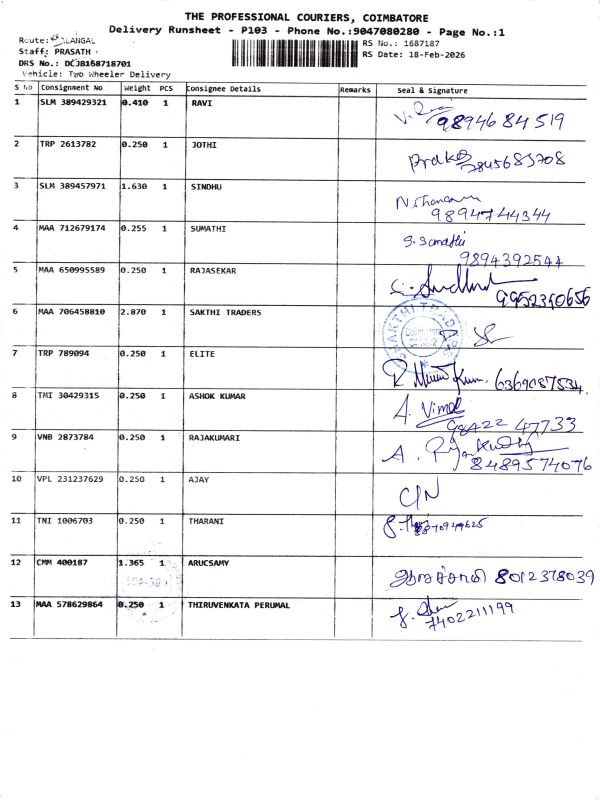 THE PROFESSIONAL COURIERS, COIMBATORE
Delivery Runsheet - P103 - Phone No.:9047080280 - Page No.:1
Route: ALANGAL
RS No.: 1687187
Staff: PRASATH
RS Date: 18-Feb-2026
DRS No.: DCJB168718701
Vehicle: Two Wheeler Delivery
S No Consignment No Weight PCS Consignee Details Remarks Seal & Signature
1 SLM 389429321 0.410 1 RAVI
9894684519
2 TRP 2613782 0.250 1 JOTHI
7845683708
3 SLM 389457971 1.630 1 SINDHU
9894744344
4 MAA 712679174 0.255 1 SUMATHI S. Sumathi
9894392544
5 MAA 650995589 0.250 1 RAJASEKAR
9952340656
6 MAA 706458810 2.870 1 SAKTHI TRADERS
7 TRP 789094 0.250 1 ELITE
6369087534
8 TMI 30429315 0.250 1 ASHOK KUMAR A. Vimal
98422 47733
9 VNB 2873784 0.250 1 RAJAKUMARI
8489574076
10 VPL 231237629 0.250 1 AJAY C/N
11 TNI 1006703 0.250 1 THARANI
12 CMM 400187 1.365 1 ARUCSAMY 8012378039
13 MAA 578629864 0.250 1 THIRUVENKATA PERUMAL
7402211199